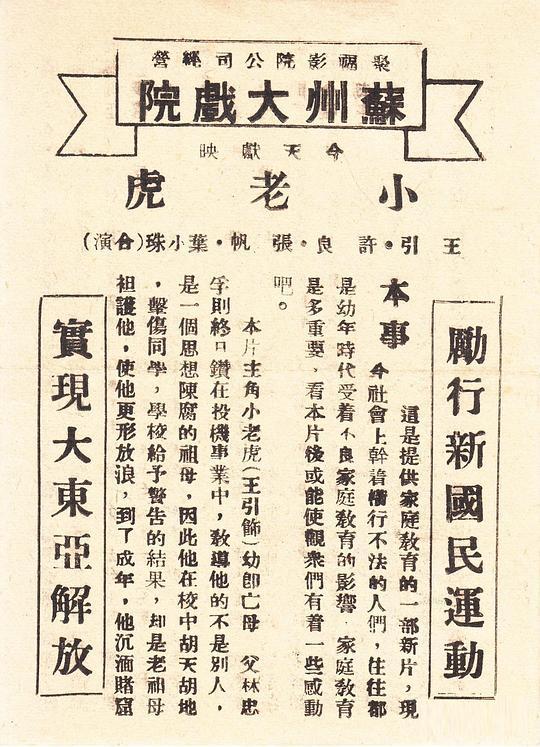 聚福影院公司經營
蘇州大戲院
今天獻映
小老虎
王引·許良·張帆·葉小珠(合演)
勵行新國民運動
本事
這是提供家庭教育的一部新片，現
今社會上幹着橫行不法的人們，往往都
是幼年時代受着不良家庭教育的影響 家庭教育
是多重要，看本片後或能使觀衆們有着一些感動
吧。
本片主角小老虎(王引飾)幼卽亡母 父林忠
孚則終日鑽在投機事業中，教導他的不是別人，
是一個思想陳腐的祖母，因此他在校中胡天胡地
，擊傷同學，學校給予警告的結果，却是老祖母
袒護他，使他更形放浪，到了成年，他沉湎賭窟
實現大東亞解放